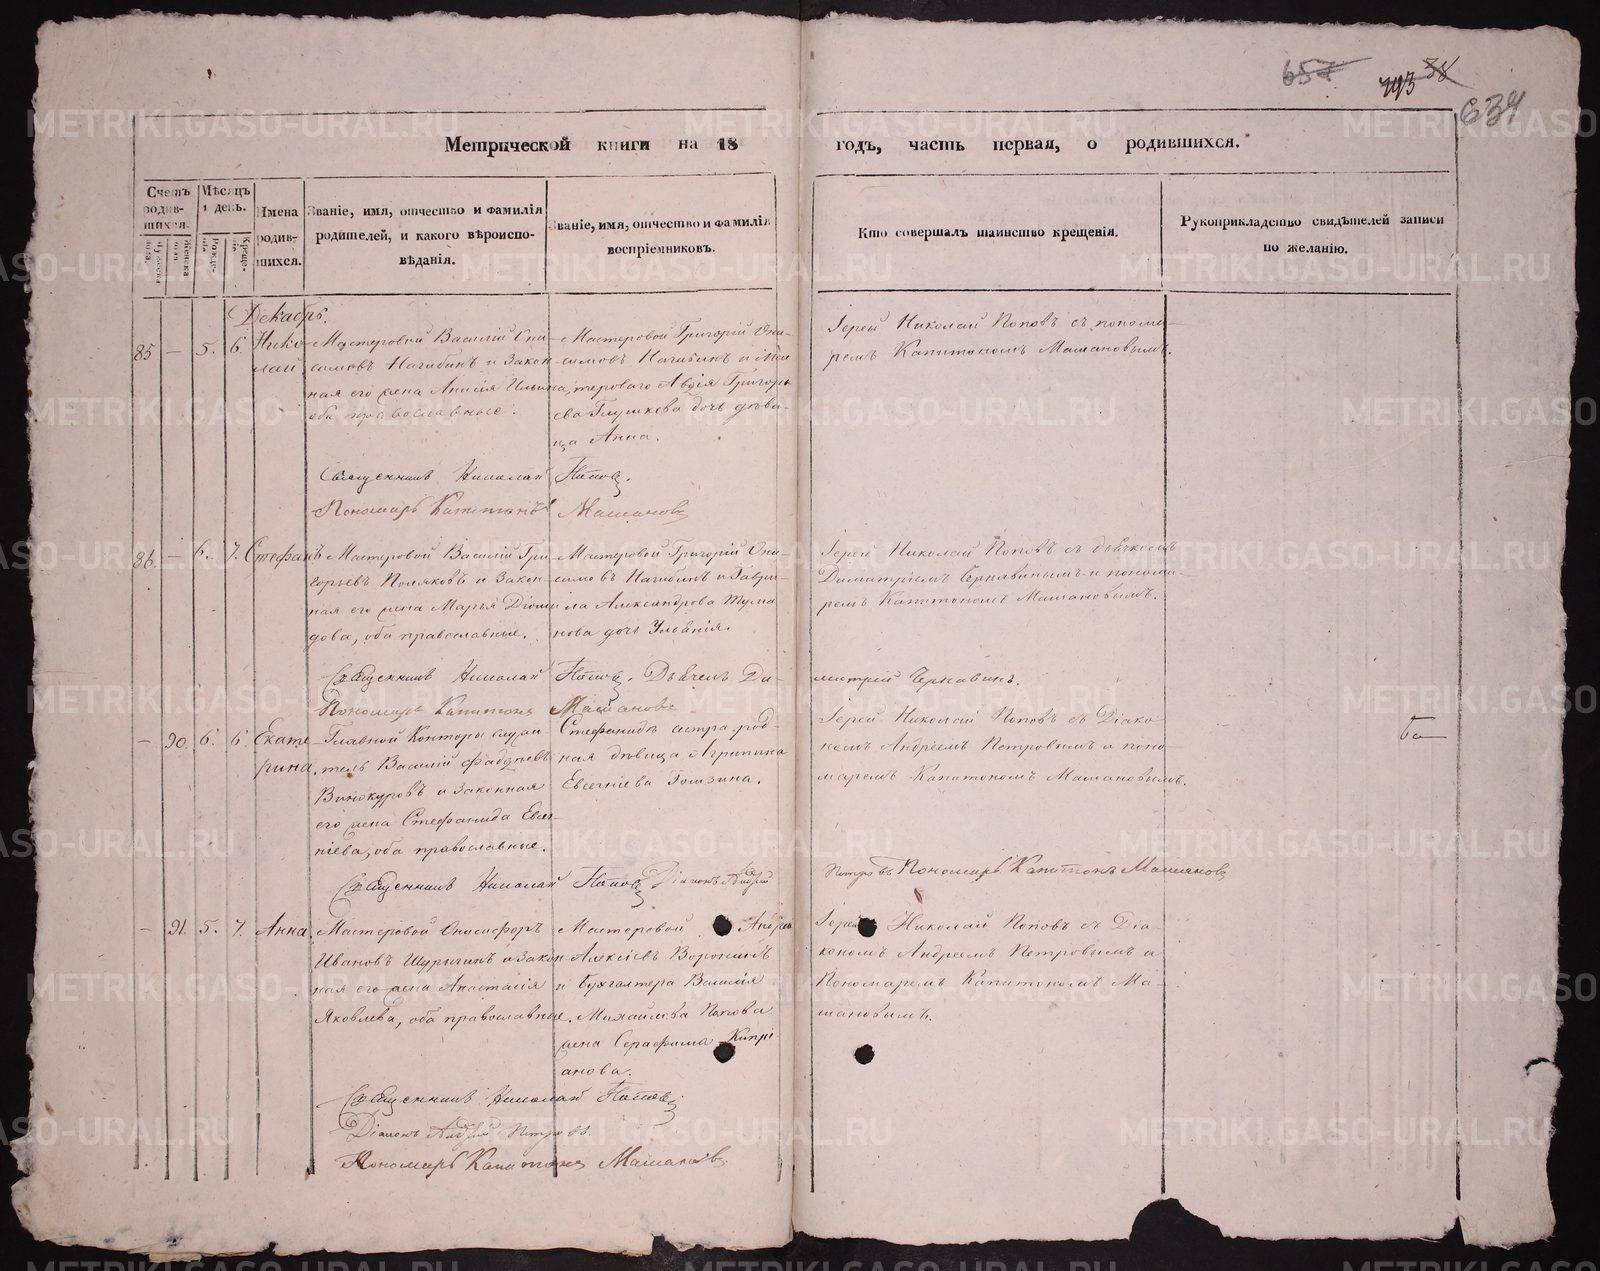 657
793 38
634
Метрической книги на 18 годъ, часть первая, о родившихся.
Счетъ родив-шихся.
Мѣсяцъ и день.
Имена родив-шихся.
Званіе, имя, отчество и фамилія родителей, и какого вѣроиспо-вѣданія.
Званіе, имя, отчество и фамилія воспріемниковъ.
Кто совершалъ таинство крещенія.
Рукоприкладство свидѣтелей записи по желанію.
Декабрь.
85 — 5. 6. Нико-лай
Мастеровой Василій Они-
симовъ Нагибинъ и Закон-
ная его жена Анисія Ильина,
оба православные.
Мастеровой Григорій Они-
симовъ Нагибинъ и Мас-
тероваго Григорь-
ева Глушкова дочь дѣви-
ца Анна.
Іерей Николай Поповъ съ понома-
ремъ Капитономъ Машановымъ.
Священникъ Николай Поповъ.
Пономарь Капитонъ Машановъ
86. — 6. 7. Стефанъ
Мастеровой Василій Гри-
горьевъ Поляковъ и Закон-
ная его жена Марья Діоми-
дова, оба православные.
Мастеровой Григорій Они-
симовъ Нагибинъ и Гаври-
ла Александрова Тума-
нова дочь Ульянія.
Іерей Николай Поповъ съ дьячкомъ
Димитріемъ Чернавинымъ и понома-
ремъ Капитономъ Машановымъ.
Священникъ Николай Поповъ. Дьячекъ Ди-
митрій Чернавинъ.
Пономарь Капитонъ Машановъ
— 90. 6. 6 Екате-рина.
Главной Конторы служи-
тель Василій Фаддѣевъ
Винокуровъ и Законная
его жена Стефанида Евге-
ніева, оба православные.
Стефаниды сестра род-
ная дѣвица Агрипина
Евгеніева
Іерей Николай Поповъ съ Діако-
номъ Андреемъ Петровымъ и поно-
маремъ Капитономъ Машановымъ.
Священникъ Николай Поповъ Діаконъ Андрей
Петровъ Пономарь Капитонъ Машановъ
— 91. 5. 7. Анна.
Мастеровой Онисифоръ
Ивановъ Шурыгинъ и Закон-
ная его жена Анастасія
Яковлева, оба православные.
Мастеровой Андрей
Алексіевъ
и Бухгалтера Василія
Михайлова Попова
жена Серафима Кипрі-
анова.
Іерей Николай Поповъ съ Діа-
кономъ Андреемъ Петровымъ и
Пономаремъ Капитономъ Ма-
шановымъ.
Священникъ Николай Поповъ
Діаконъ Андрей Петровъ.
Пономарь Капитонъ Машановъ
METRIKI.GASO-URAL.RU